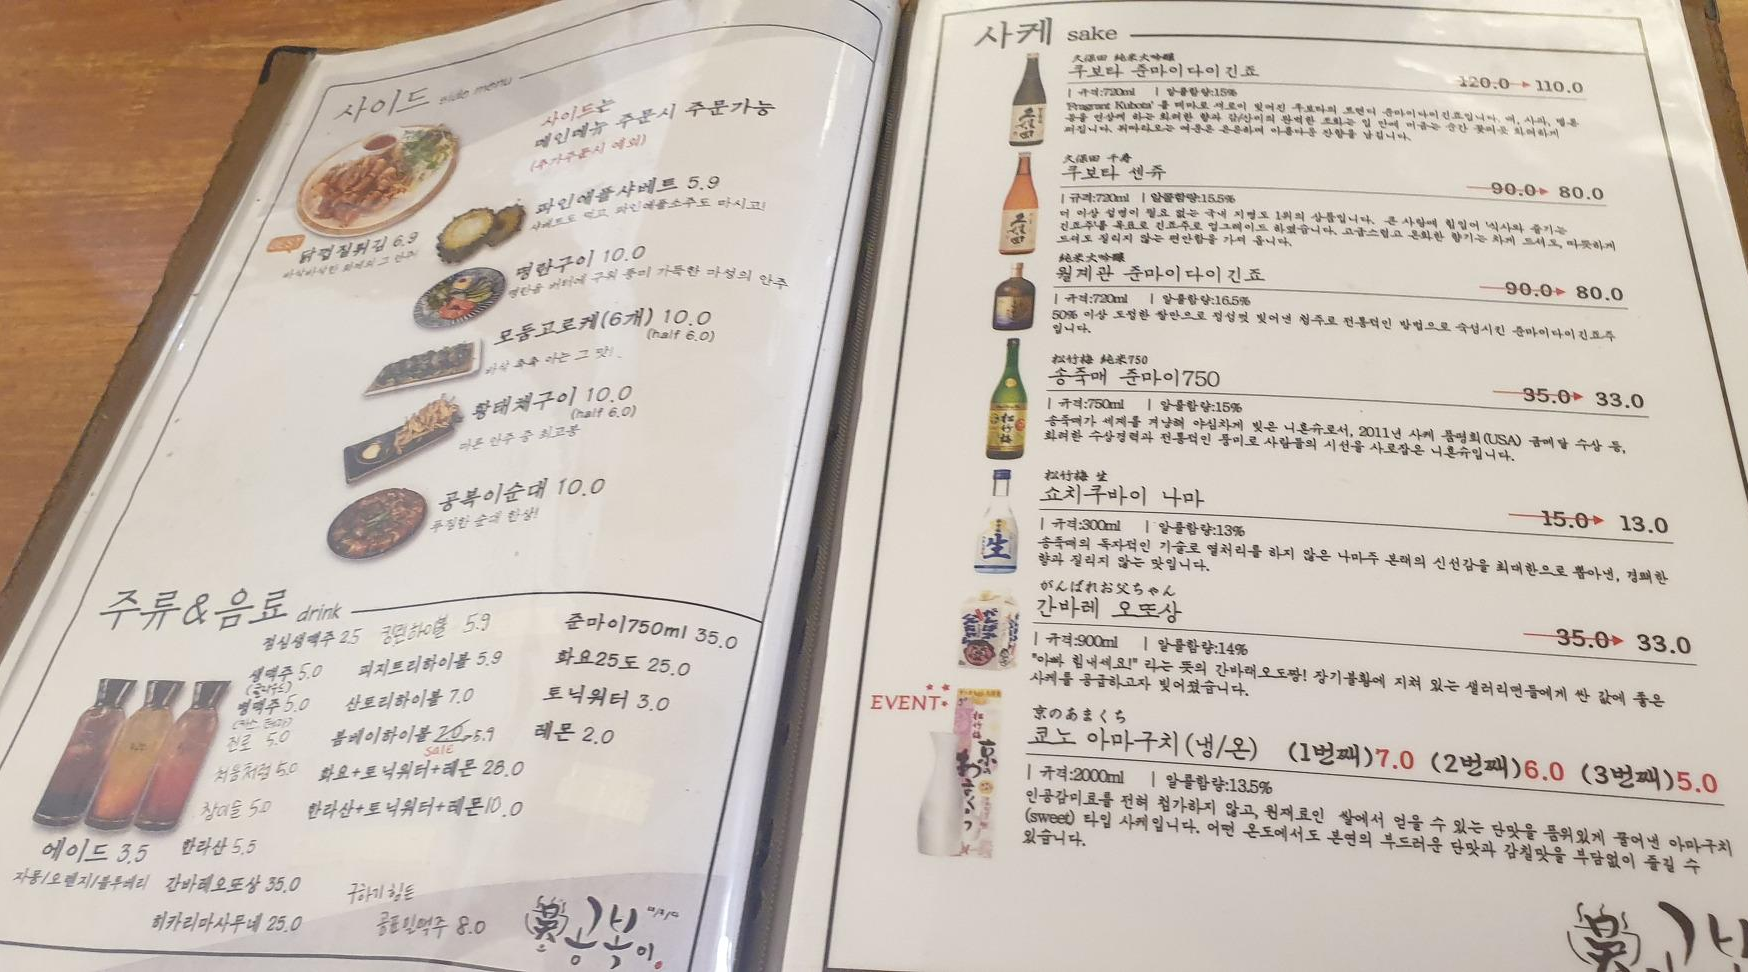 사이드 side menu
사이드는
메인메뉴 주문시 주문가능
(추가주문시 예외)
BEST
닭껍질튀김 6.9
바삭바삭한 화제의 그 안주!
파인애플샤베트 5.9
샤베트도 먹고, 파인애플소주도 마시고!
명란구이 10.0
명란을 버터에 구워 풍미 가득한 마성의 안주
모둠고로케(6개) 10.0
(half 6.0)
바삭 촉촉 아는 그 맛!
황태채구이 10.0
(half 6.0)
마른 안주 중 최고봉
공복이순대 10.0
푸짐한 순대 한상!
주류&음료 drink
점심생맥주 2.5
생맥주 5.0
(클라우드)
병맥주 5.0
진로 5.0
처음처럼 5.0
참이슬 5.0
한라산 5.5
에이드 3.5
자몽/오렌지/블루베리
간바레오또상 35.0
히카리마사무네 25.0
짐빔하이볼 5.9
피치트리하이볼 5.9
산토리하이볼 7.0
봄베이하이볼 7.0 5.9
sale
화요+토닉워터+레몬 28.0
한라산+토닉워터+레몬 10.0
구하기 힘든
곰표밀맥주 8.0
준마이750ml 35.0
화요25도 25.0
토닉워터 3.0
레몬 2.0
공복이
사케 sake
久保田 純米大吟醸
쿠보타 준마이다이긴죠
120.0 110.0
| 규격:720ml | 알콜함량:15%
'Fragrant Kubota' 를 테마로 새로이 빚어진 쿠보타의 브랜디 준마이다이긴죠입니다. 배, 사과, 멜론
등을 연상케 하는 화려한 향과 감/산미의 완벽한 조화는 입 안에 머금는 순간 꽃피듯 화려하게
퍼집니다. 뒤따라오는 여운은 은은하며 아름다운 잔향을 남깁니다.
久保田 千寿
쿠보타 센쥬
90.0 80.0
| 규격:720ml | 알콜함량:15.5%
더 이상 설명이 필요 없는 국내 지명도 1위의 상품입니다. 큰 사랑에 힘입어 '식사와 즐기는
긴죠주'를 목표로 긴죠주로 업그레이드 하였습니다. 고급스럽고 온화한 향기는 차게 드셔도, 따뜻하게
드셔도 질리지 않는 편안함을 가져 옵니다.
純米大吟醸
월계관 준마이다이긴죠
90.0 80.0
| 규격:720ml | 알콜함량:16.5%
50% 이상 도정한 쌀만으로 정성껏 빚어낸 청주로 전통적인 방법으로 숙성시킨 준마이다이긴죠주
입니다.
松竹梅 純米750
송죽매 준마이750
35.0 33.0
| 규격:750ml | 알콜함량:15%
송죽매가 세계를 겨냥해 야심차게 빚은 니혼슈로서, 2011년 사케 품평회(USA) 금메달 수상 등,
화려한 수상경력과 전통적인 풍미로 사람들의 시선을 사로잡은 니혼슈입니다.
松竹梅 生
쇼치쿠바이 나마
15.0 13.0
| 규격:300ml | 알콜함량:13%
송죽매의 독자적인 기술로 열처리를 하지 않은 나마주 본래의 신선감을 최대한으로 뽑아낸, 경쾌한
향과 질리지 않는 맛입니다.
がんばれお父ちゃん
간바레 오또상
35.0 33.0
| 규격:900ml | 알콜함량:14%
"아빠 힘내세요!" 라는 뜻의 간바레오도짱! 장기불황에 지쳐 있는 샐러리맨들에게 싼 값에 좋은
사케를 공급하고자 빚어졌습니다.
EVENT
京のあまくち
쿄노 아마구치(냉/온) (1번째)7.0 (2번째)6.0 (3번째)5.0
| 규격:2000ml | 알콜함량:13.5%
인공감미료를 전혀 첨가하지 않고, 원재료인 쌀에서 얻을 수 있는 단맛을 품위있게 풀어낸 아마구치
(sweet) 타입 사케입니다. 어떤 온도에서도 본연의 부드러운 단맛과 감칠맛을 부담없이 즐길 수
있습니다.